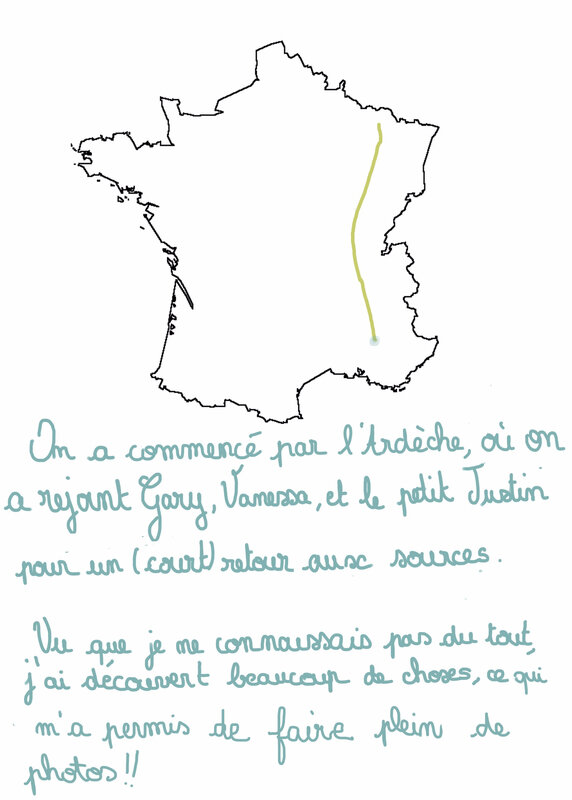 On a commencé par l'Ardèche, où on
a rejoint Gary, Vanessa, et le petit Justin
pour un (court) retour aux sources.
Vu que je ne connaissais pas du tout,
j'ai découvert beaucoup de choses, ce qui
m'a permis de faire plein de
photos!!